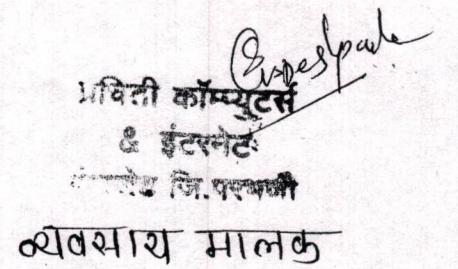 प्रविती कॉम्प्युटर्स
& इंटरनेट
जि.परभणी
व्यवसाय मालक